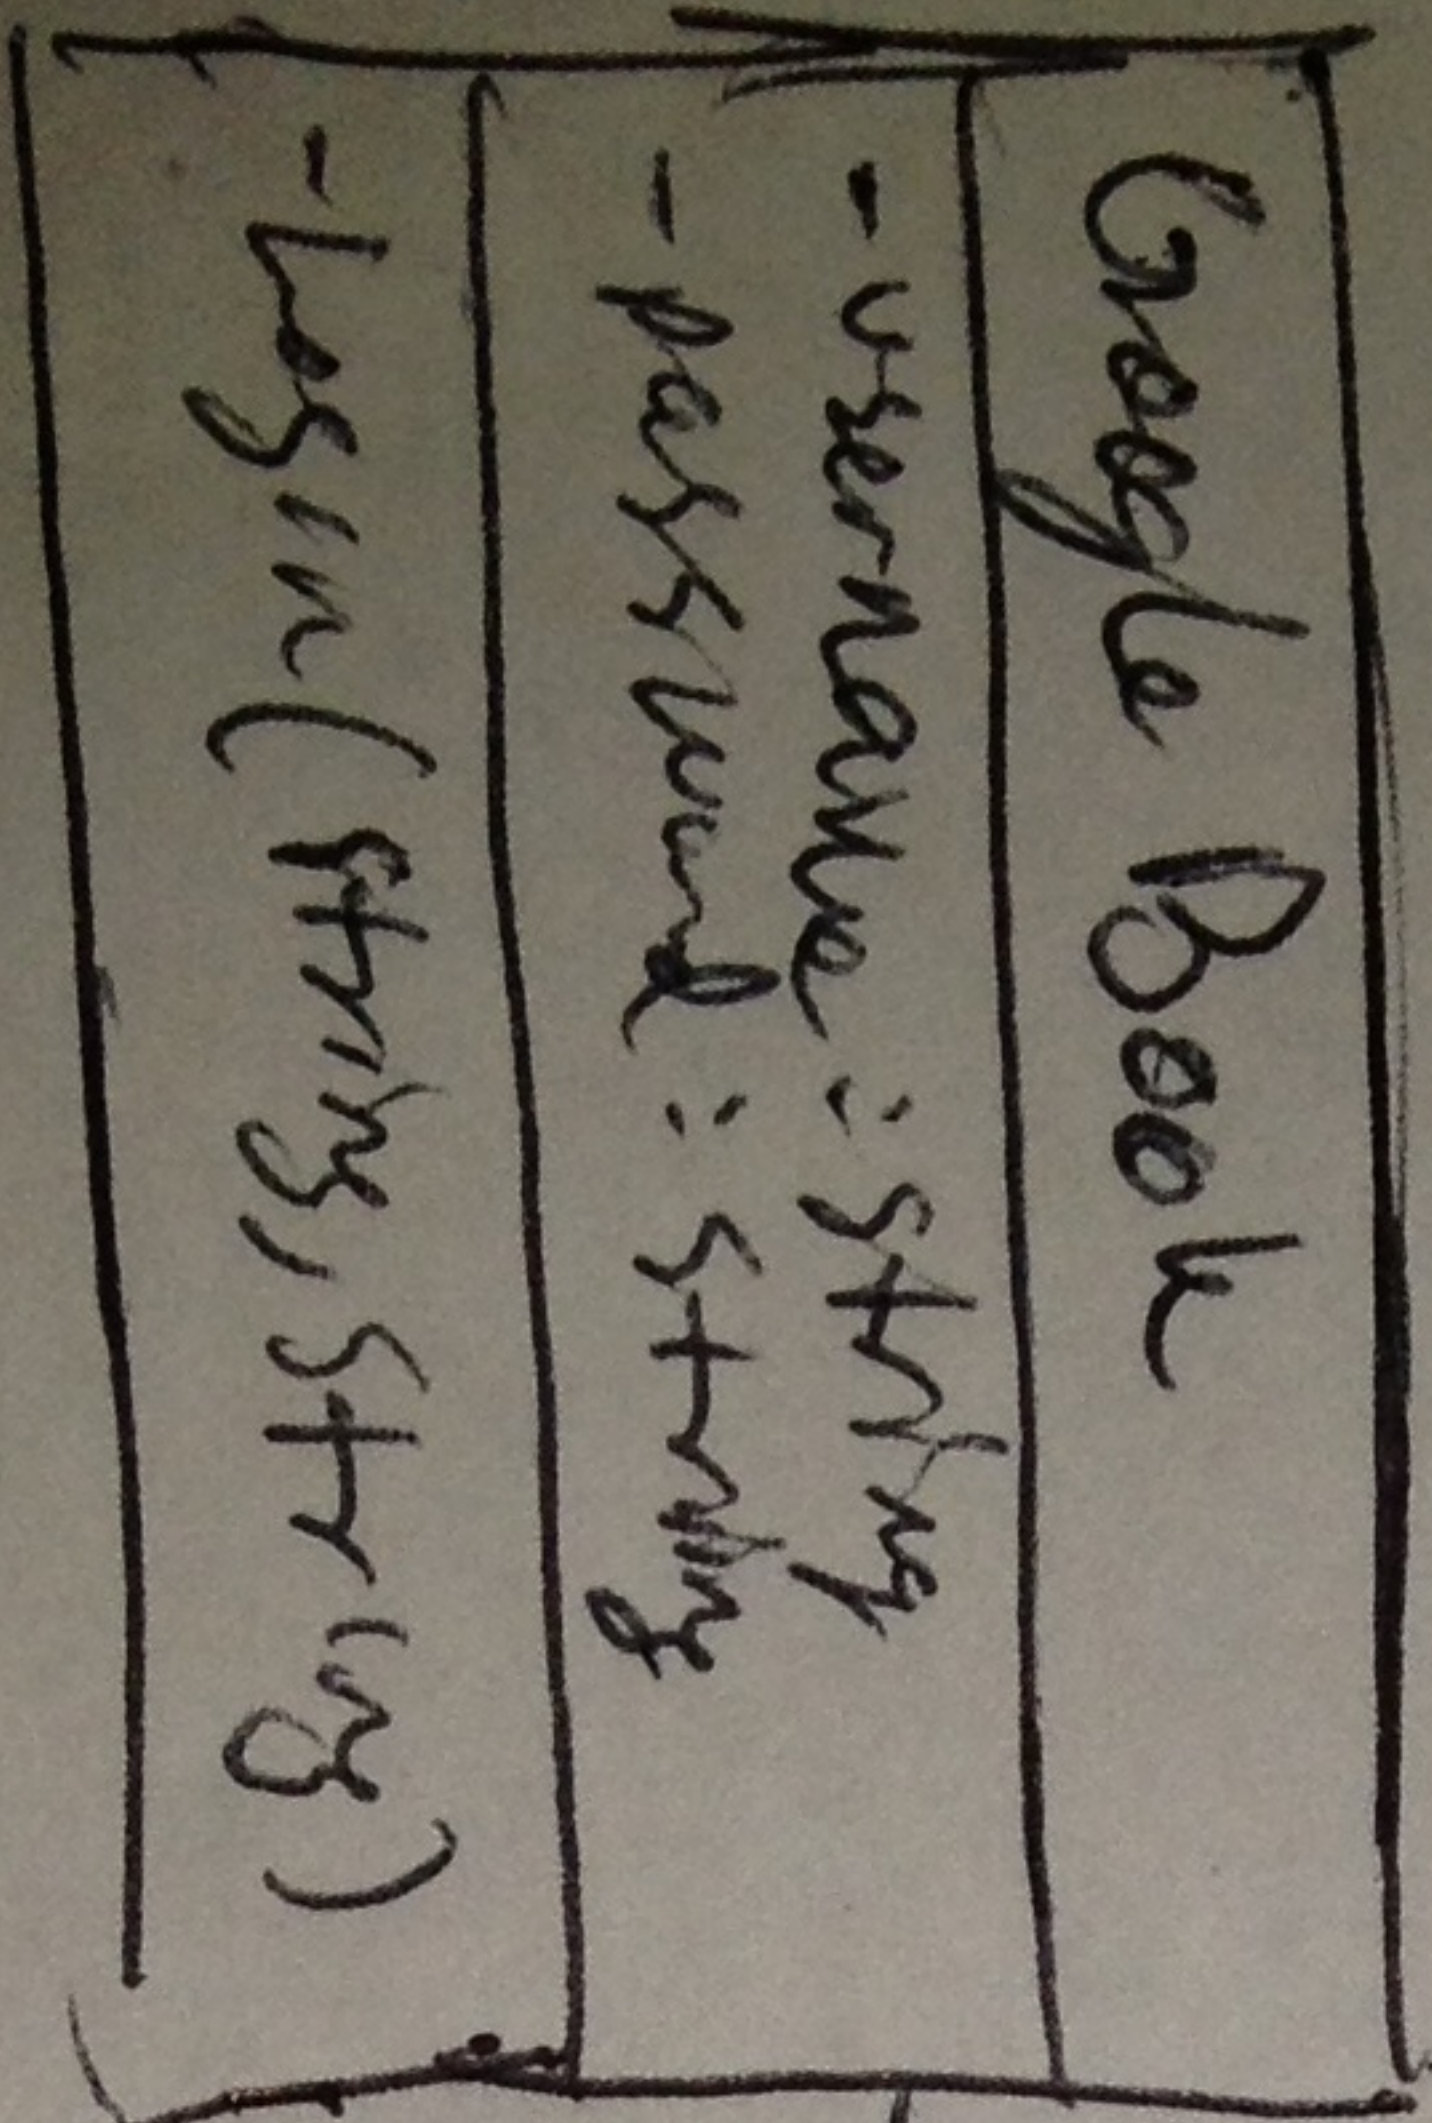 Google Book
- username : String
- password : String
- Login(String, String)